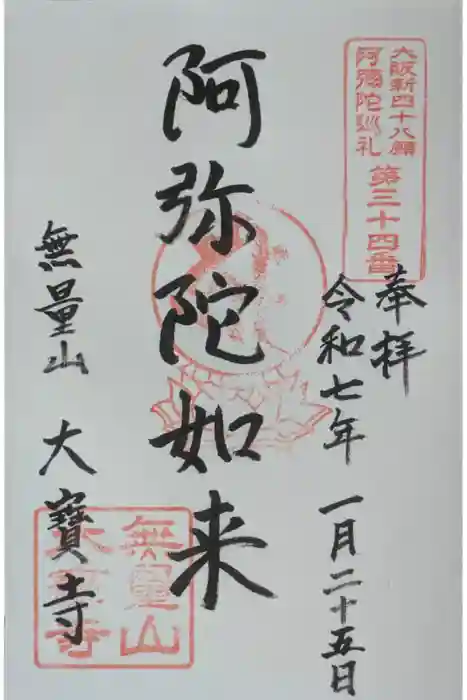 大阪新四十八願
阿彌陀巡礼
第三十四番
奉拝
令和七年 一月二十五日
阿弥陀如来
無量山 大寳寺
無量山
大寳寺